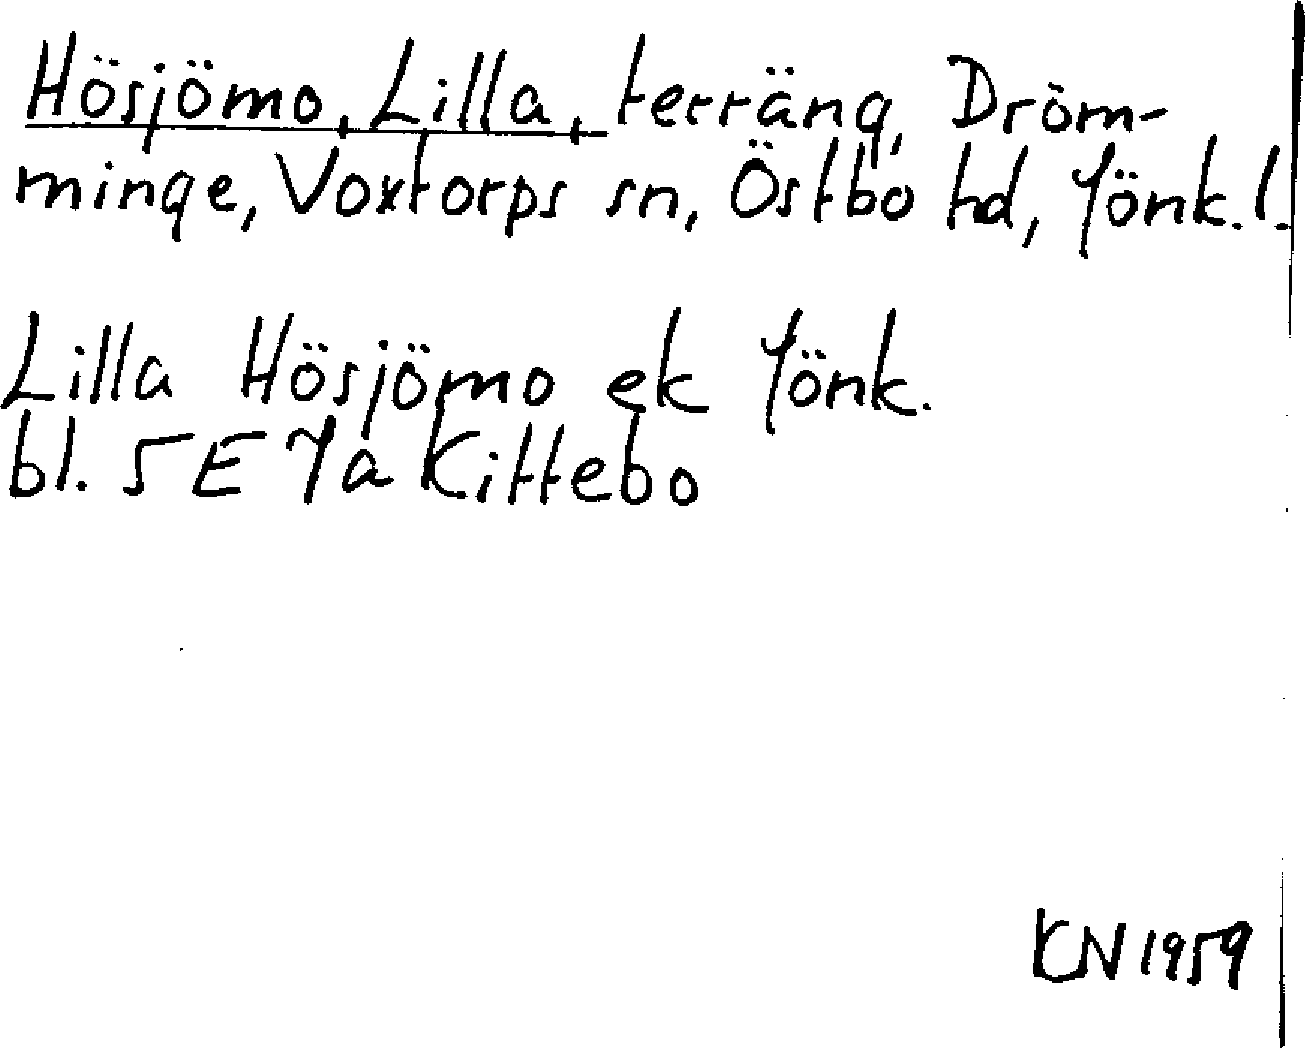 Hösjömo, Lilla, terräng, Dröm-
minge, Voxtorps sn, Östbo hd, Jönk. l.
Lilla Hösjömo ek Jönk.
bl. 5 E 7a Kittebo
KN 1959